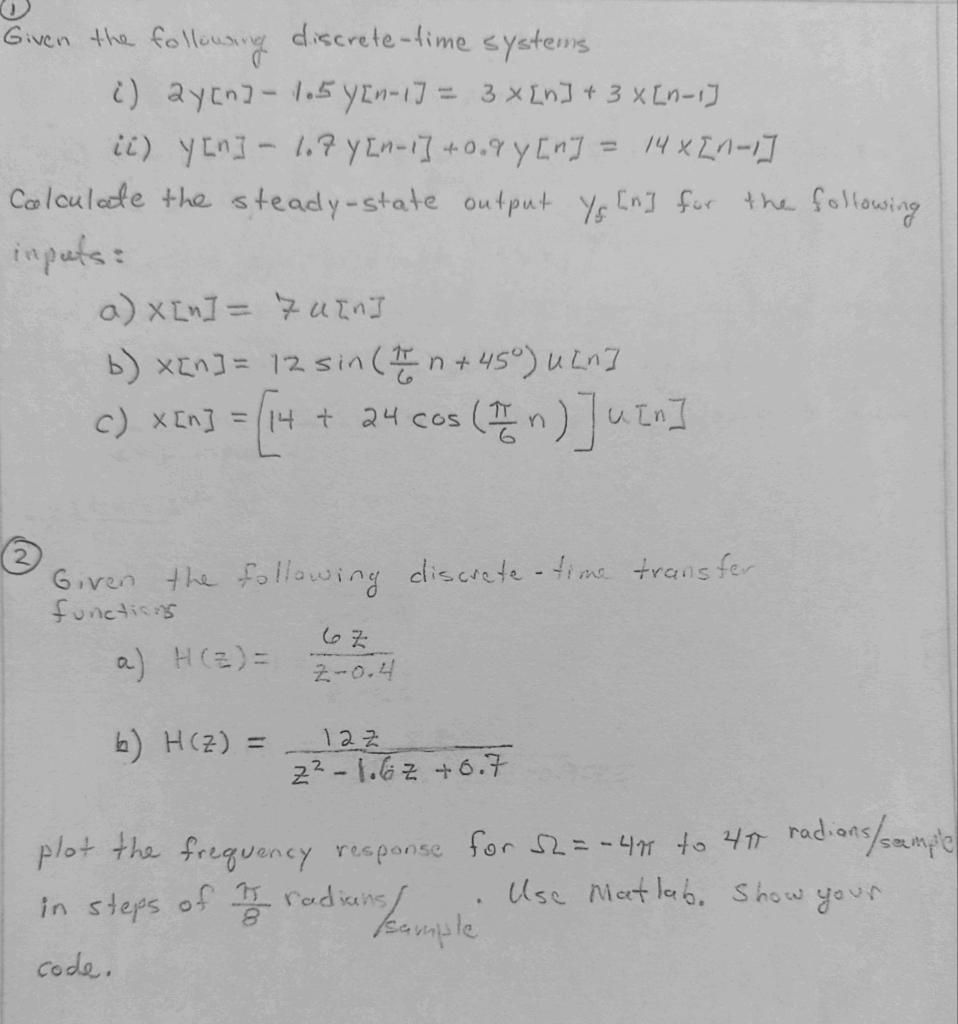 ①
Given the following discrete-time systems
i) 2y[n] - 1.5 y[n-1] = 3 x[n] + 3 x[n-1]
ii) y[n] - 1.7 y[n-1] + 0.9 y[n] = 14 x[n-1]
Calculate the steady-state output ys [n] for the following
inputs:
a) x[n] = 7 u[n]
b) x[n] = 12 sin(π/6 n + 45°) u[n]
c) x[n] = [14 + 24 cos (π/6 n)] u[n]
②
Given the following discrete-time transfer
functions
a) H(z) = 6z / z-0.4
b) H(z) = 12z / z² - 1.6z + 0.7
plot the frequency response for Ω = -4π to 4π radians/sample
in steps of π/8 radians/sample. Use Matlab. Show your
code.